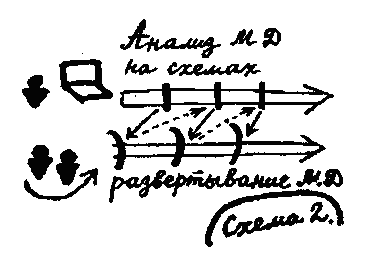 Анализ М Д
на схемах
развертывание М.Д
Схема 2.